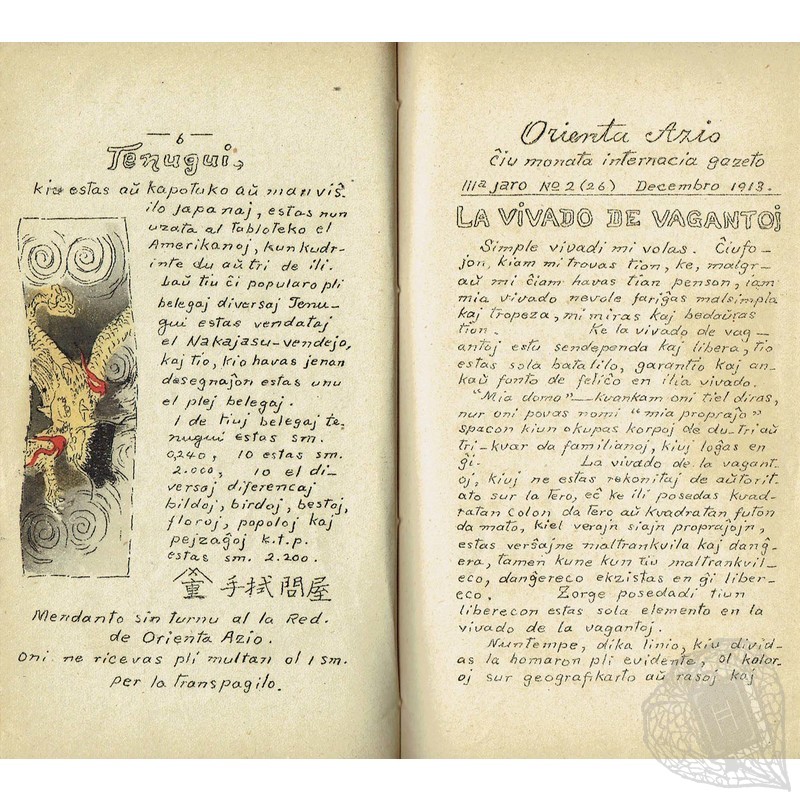 — 6 —
Tenugui,
kiu estas aŭ kapotuko aŭ manviŝ-
ilo japanaj, estas nun
uzata al tabloteko el
Amerikanoj, kun kudr-
inte du aŭ tri de ili.
Laŭ tiu ĉi popularo pli
belegaj diversaj Tenu-
gui estas vendataj
el Nakajasu-vendejo,
kaj tio, kio havas jenan
desegnaĵon estas unu
el plej belegaj.
1 de tiuj belegaj te-
nugui estas sm.
0,240, 10 estas sm.
2.000, 10 el di-
versaj diferencaj
bildoj, birdoj, bestoj,
floroj, popoloj kaj
pejzaĝoj k.t.p.
estas sm. 2.200.
重 手拭問屋
Mendanto sin turnu al la Red.
de Orienta Azio.
Oni ne ricevas pli multan ol 1 sm.
per la transpagilo.
Orienta Azio
ĉiu monata internacia gazeto
IIIa jaro No 2 (26) Decembro 1913.
LA VIVADO DE VAGANTOJ
Simple vivadi mi volas. Ĉiufo-
jon, kiam mi trovas tion, ke, malgr-
aŭ mi ĉiam havas tian penson, iam
mia vivado nevole fariĝas malsimpla
kaj tropeza, mi miras kaj bedaŭras
tion. Ke la vivado de vag-
antoj estu sendependa kaj libera, tio
estas sola batalilo, garantio kaj an-
kaŭ fonto de feliĉo en ilia vivado.
"Mia domo" — kvankam oni tiel diras,
nur oni povas nomi "mia propraĵo"
spacon kiun okupas korpoj de du-tri aŭ
tri-kvar da familianoj, kiuj loĝas en
ĝi. La vivado de la vagant-
oj, kiuj ne estas rekonitaj de aŭtorit-
ato sur la Tero, eĉ ke ili posedas kvad-
ratan colon da Tero aŭ kvadratan futon
da mato, kiel verajn siajn propraĵojn,
estas verŝajne maltrankvila kaj danĝ-
era, tamen kune kun tiu maltrankvil-
eco, danĝereco ekzistas en ĝi liber-
eco. Zorge posedadi tiun
liberecon estas sola elemento en la
vivado de la vagantoj.
Nuntempe, dika linio, kiu divid-
as la homaron pli evidente, ol kolor-
oj sur geografikarto aŭ rasoj kaj